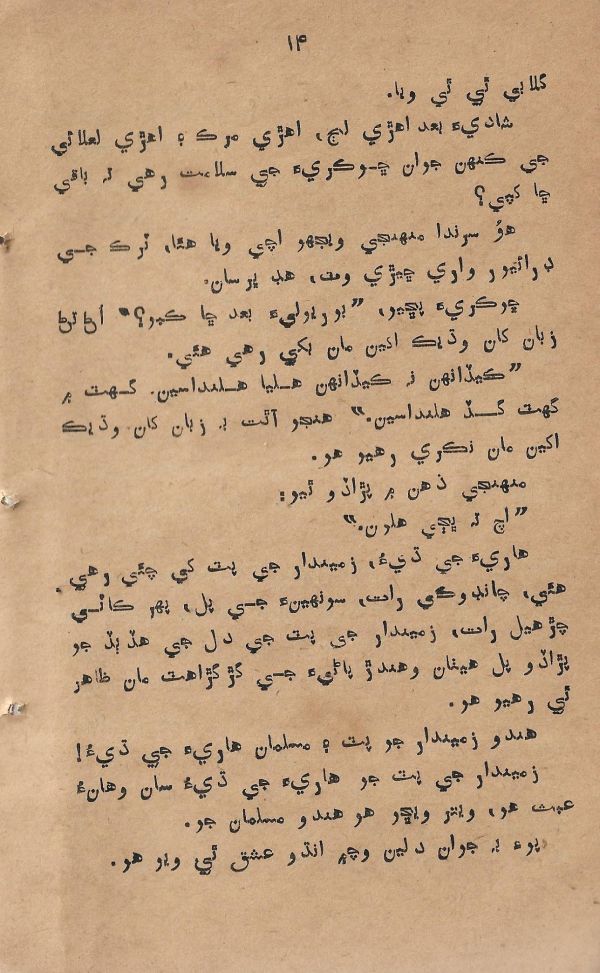 ۱۴
گلابي ٿي ٿي ويا.
شاديءَ بعد اهڙي لڄ، اهڙي مرڪ ۽ اهڙي لعلائي
جي ڪنهن جوان ڇوڪريءَ جي سلامت رهي ته باقي
ڇا کپي؟
هوُ سرندا منهنجي ويجهو اچي ويا هئا، ٽرڪ جي
ڊرائيور واري ڇيڙي وٽ، هڊ ڀرسان.
ڇوڪريءَ پڇيو، ”بورولءَ بعد ڇا ڪبو؟“ اُڻ تڻ
زبان کان وڌيڪ اکين مان بکي رهي هئي.
”ڪيڏانهن نه ڪيڏانهن هليا هلنداسين. گهٽ ۾
گهٽ گڏ هلنداسين.“ هنجو آٿت به زبان کان وڌيڪ
اکين مان نڪري رهيو هو.
منهنجي ذهن ۾ پڙاڏو ٿيو:
”اچ ته ڀڄي هلون.“
هاريءَ جي ڌيءُ، زميندار جي پٽ کي چئي رهي
هئي، چانڊوڪي رات، سونهيءَ جي پل، پهر کائي
چڙهيل رات، زميندار جي پٽ جي دل جي هڏٻڏ جو
پڙاڏو پل هيٺان وهندڙ پاڻيءَ جي گڙگڙاهٽ مان ظاهر
ٿي رهيو هو.
هندو زميندار جو پٽ ۽ مسلمان هاريءَ جي ڌيءُ!
زميندار جي پٽ جو هاريءَ جي ڌيءُ سان وهانءُ
عبث هو، ويتر ويڇو هو هندو مسلمان جو.
پوءِ به جوان دلين وچ ۾ انڌو عشق ٿي ويو هو.